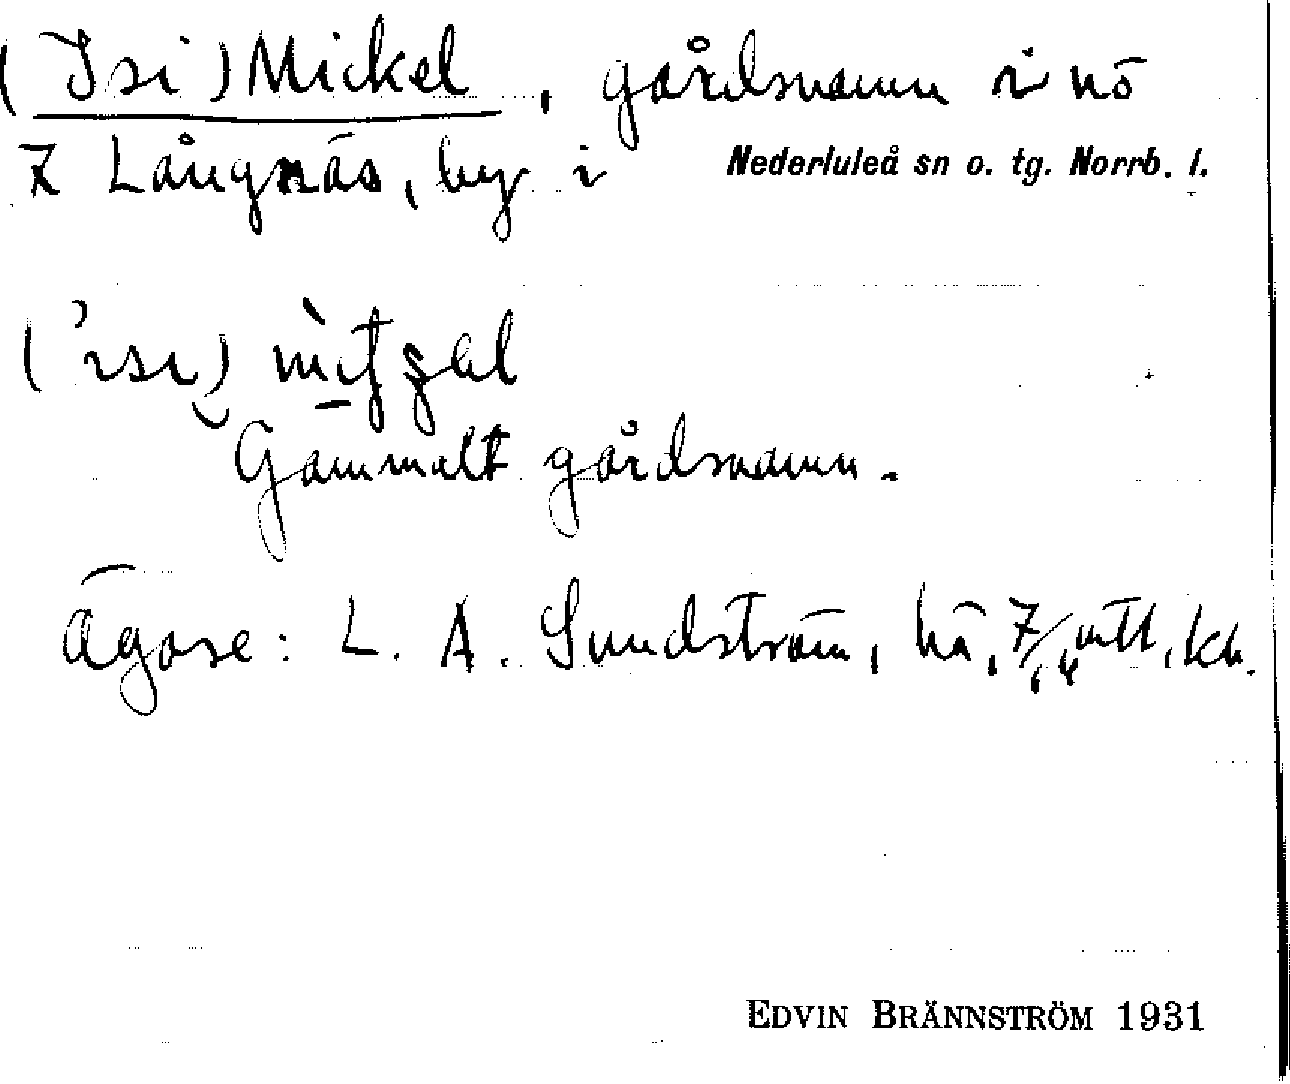 (Isi) Mickel, gårdsnamn i nō
7 Långnäs, by i Nederluleå sn o. tg. Norrb. l.
Gammalt gårdsnamn.
Ägare: L. A. Sundström, hä, 7/16 mtl, kh.
EDVIN BRÄNNSTRÖM 1931